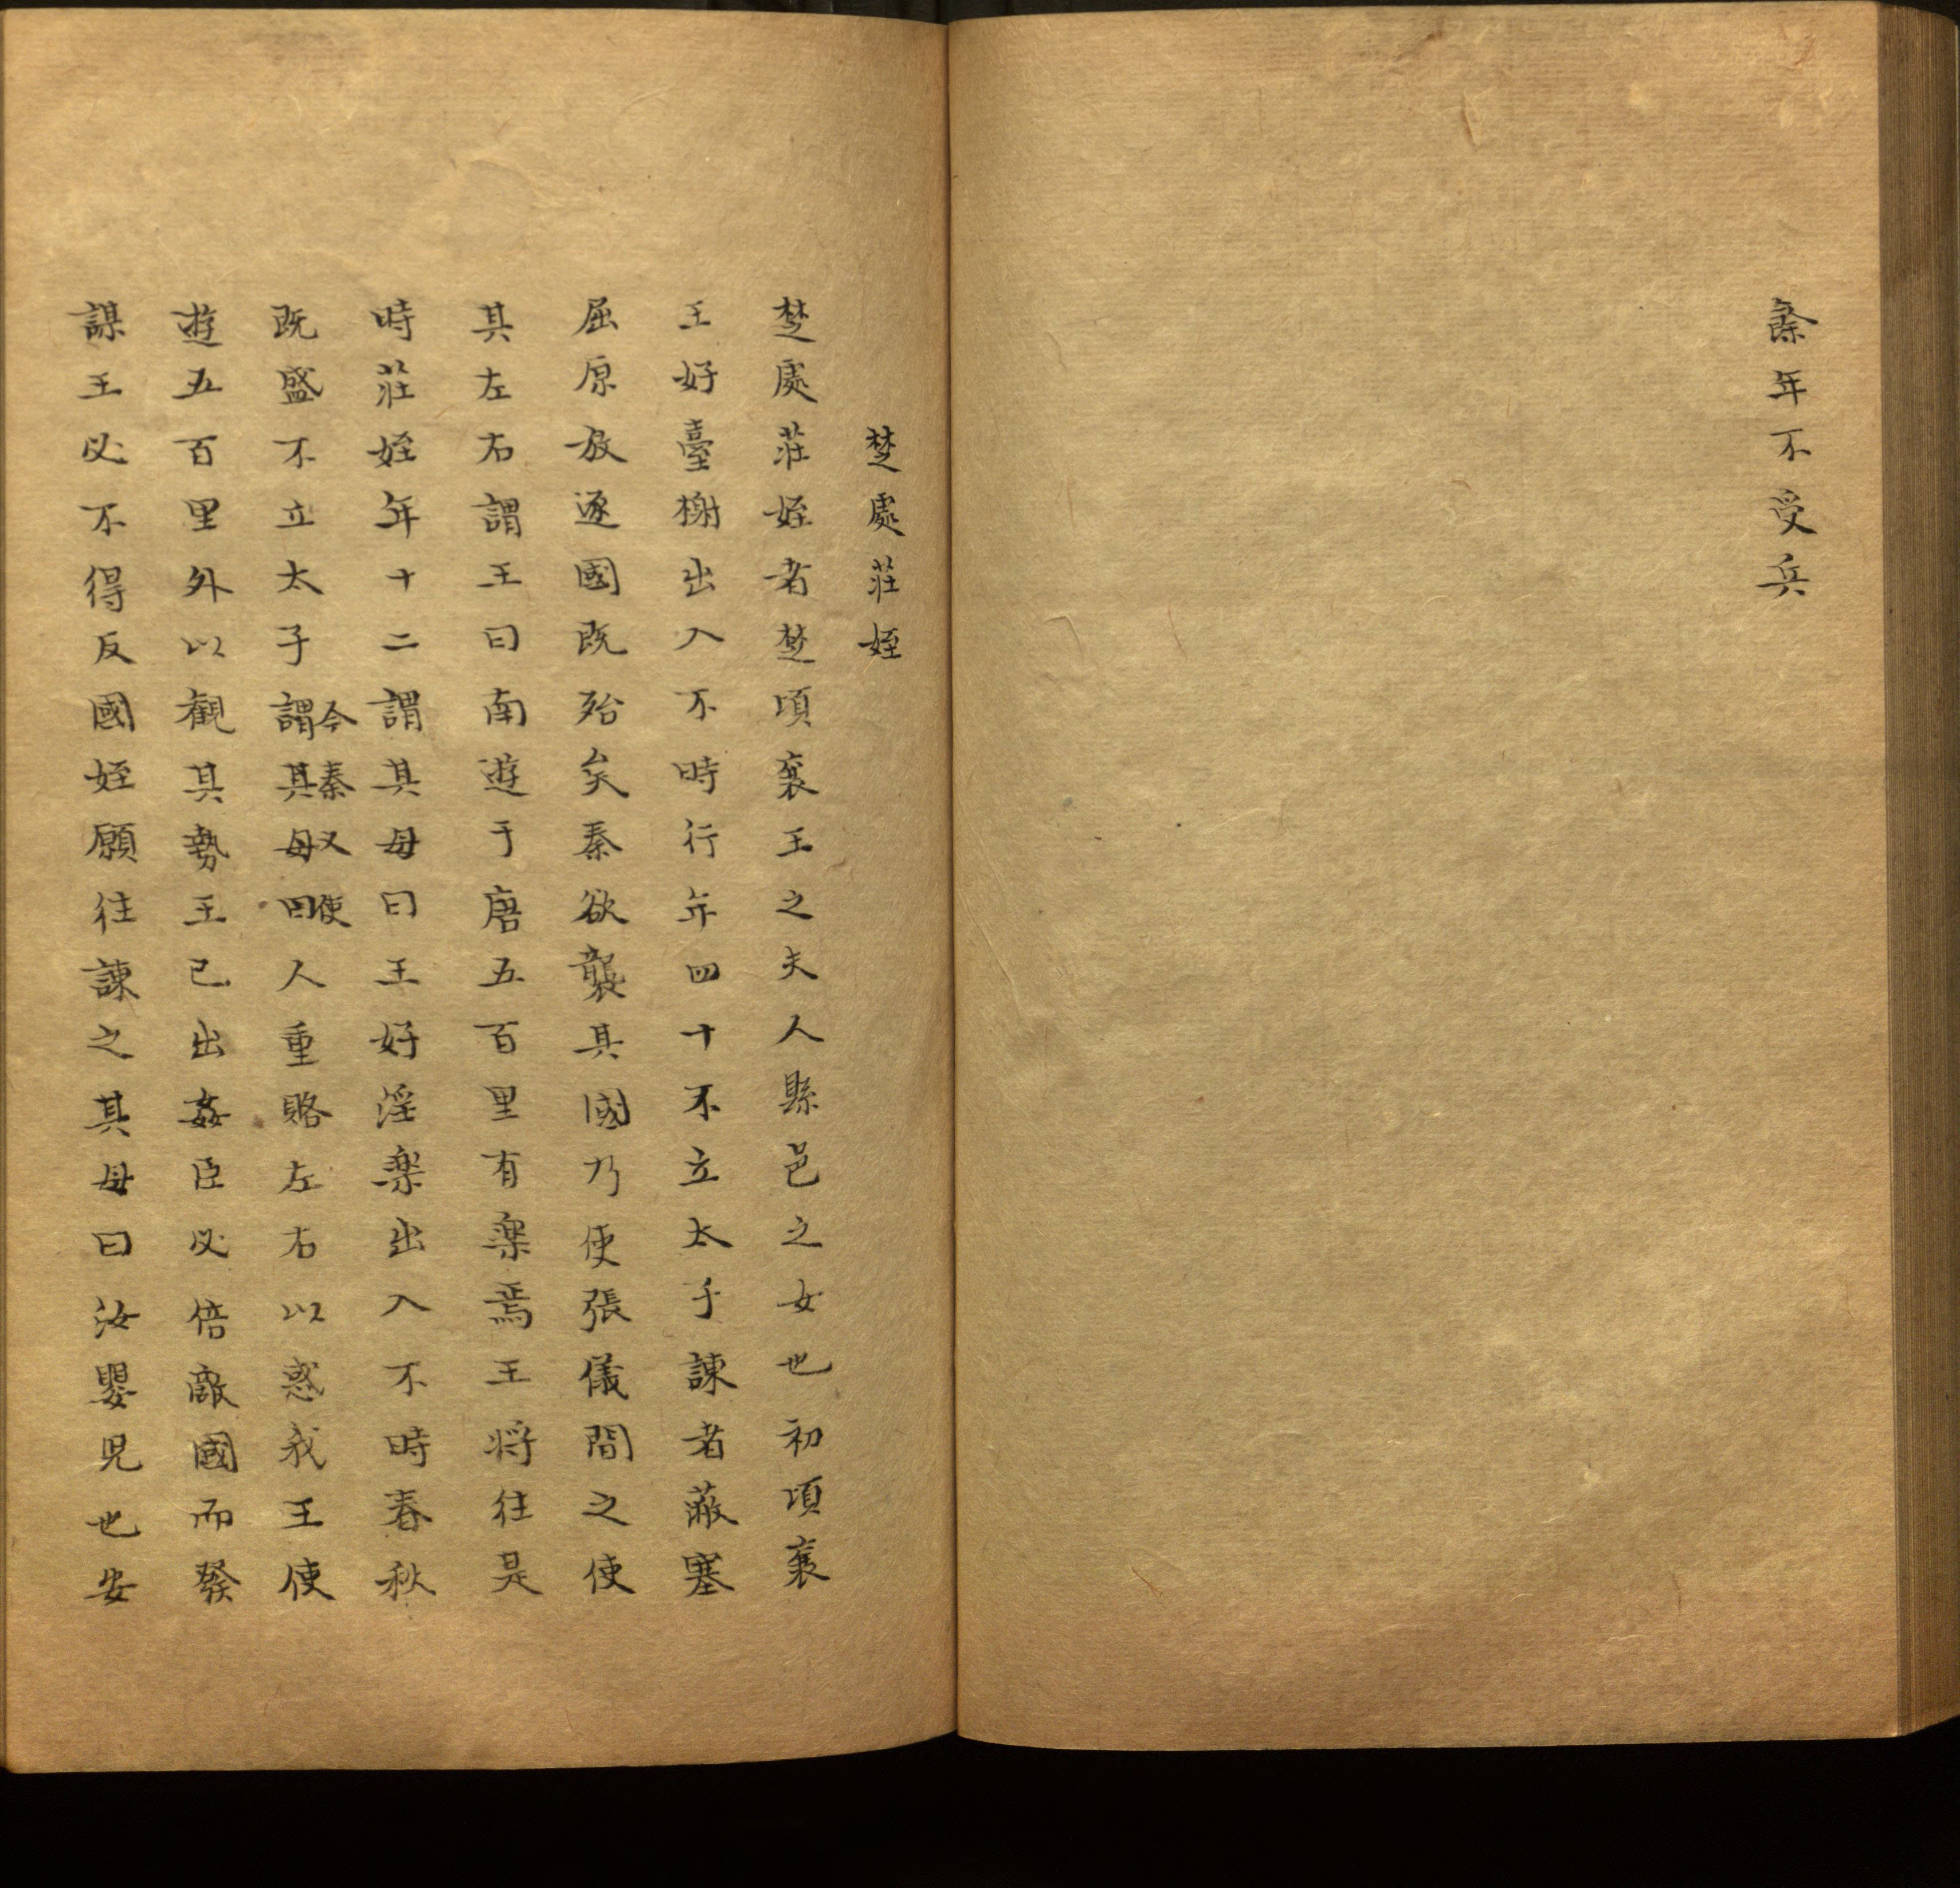 餘年不受兵
楚處莊姪
楚處莊姪者楚頃襄王之夫人縣邑之女也初頃襄
王好臺榭出入不時行年四十不立太子諫者蔽塞
屈原放逐國既殆矣秦欲襲其國乃使張儀間之使
其左右謂王曰南遊于唐五百里有樂焉王將往是
時莊姪年十二謂其母曰王好淫樂出入不時春秋
既盛不立太子謂其母曰今秦又使人重賂左右以惑我王使
遊五百里外以観其勢王已出姦臣必倍敵國而發
謀王必不得反國姪願往諫之其母曰汝嬰兒也安